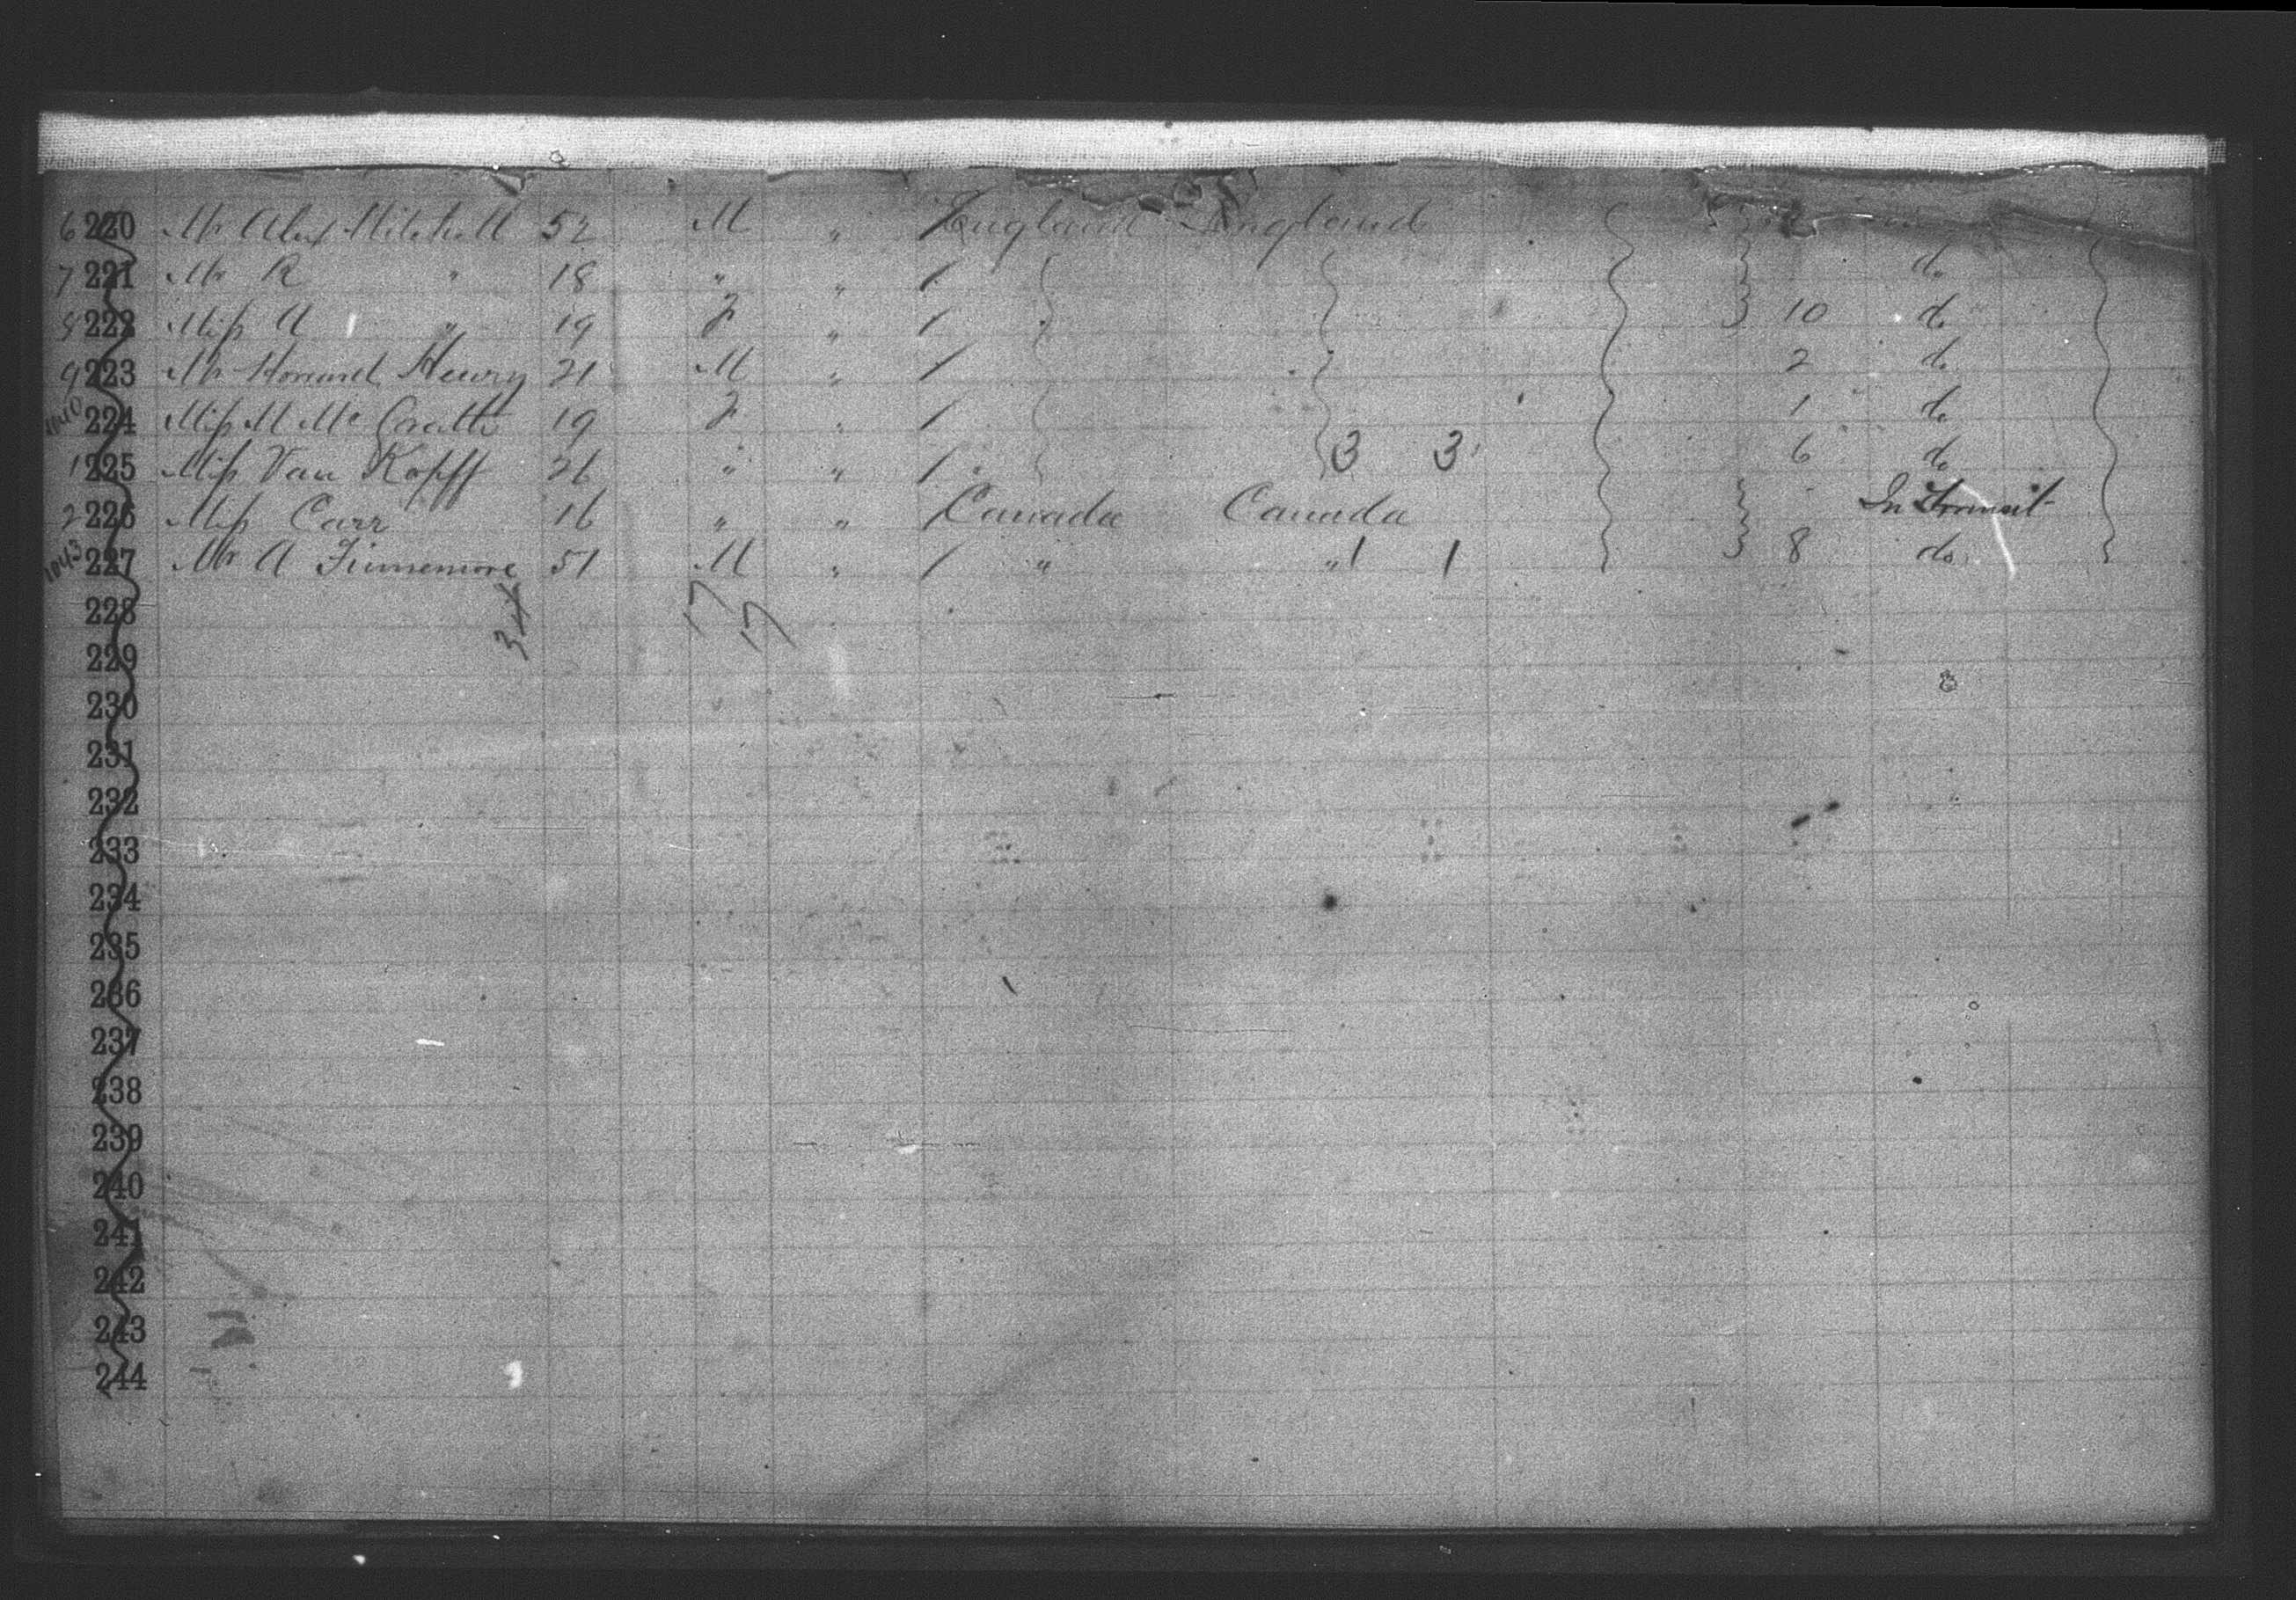 6 220 Mr Alex Mitchell 52 M " / England England
7 221 Mr R " 18 " " / do
8 222 Miss A " 19 F " / 10 do
9 223 Mr Howard Henry 21 M " / 2 do
1040 224 Miss M Mc 19 F " / 1 do
1 225 Miss Van Kopff 26 " " / 3 3 6 do
2 226 Miss Carr 16 " " / Canada Canada In Transit
1043 227 Mr A Finnemore 51 M " / " " 1 1 8 do
228 17
229 17
230
231
232
233
234
235
236
237
238
239
240
241
242
243
244